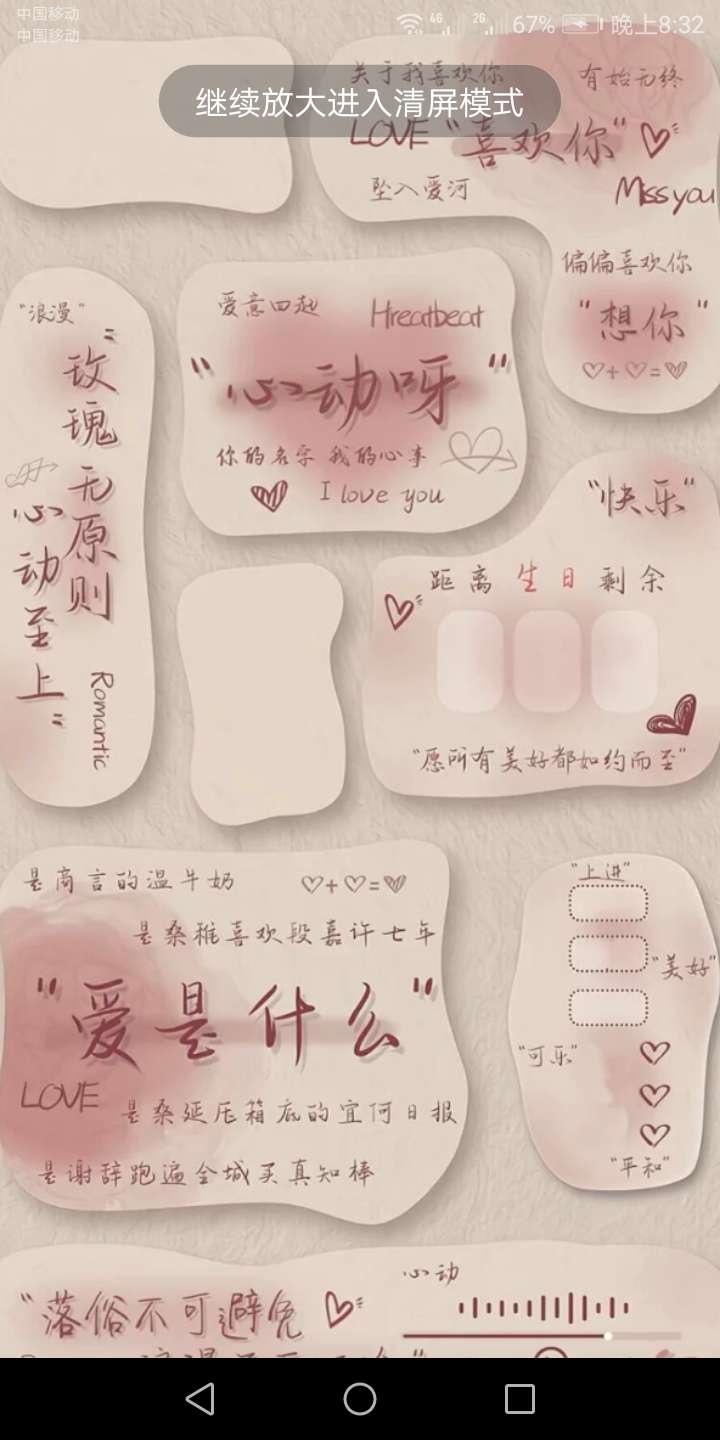 中国移动
中国移动
4G
2G
67%
晚上8:32
继续放大进入清屏模式
关于我喜欢你
有始无终
LOVE "喜欢你"
坠入爱河
Miss you
偏偏喜欢你
"想你"
"浪漫"
"玫瑰无原则
心动至上"
Romantic
爱意四起
Hreatbeat
"心动呀"
你的名字 我的心事
I love you
"快乐"
距离生日剩余
"愿所有美好都如约而至"
是商言的温牛奶
是桑稚喜欢段嘉许七年
"爱是什么"
LOVE
是桑延压箱底的宜何日报
是谢辞跑遍全城买真知棒
"上进"
"美好"
"可乐"
"平和"
心动
"落俗不可避免